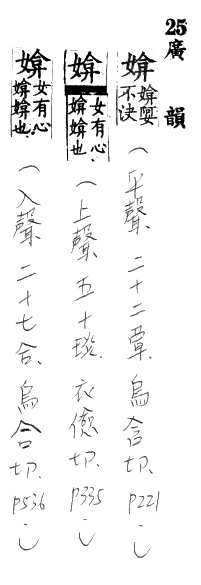 25廣韻
媕 媕娿
不決
(平聲、二十二覃、烏含切、P221)
媕 女有心
媕媕也
(上聲、五十琰、衣儉切、P335)
媕 女有心
媕媕也
(入聲、二十七合、烏合切、P536)